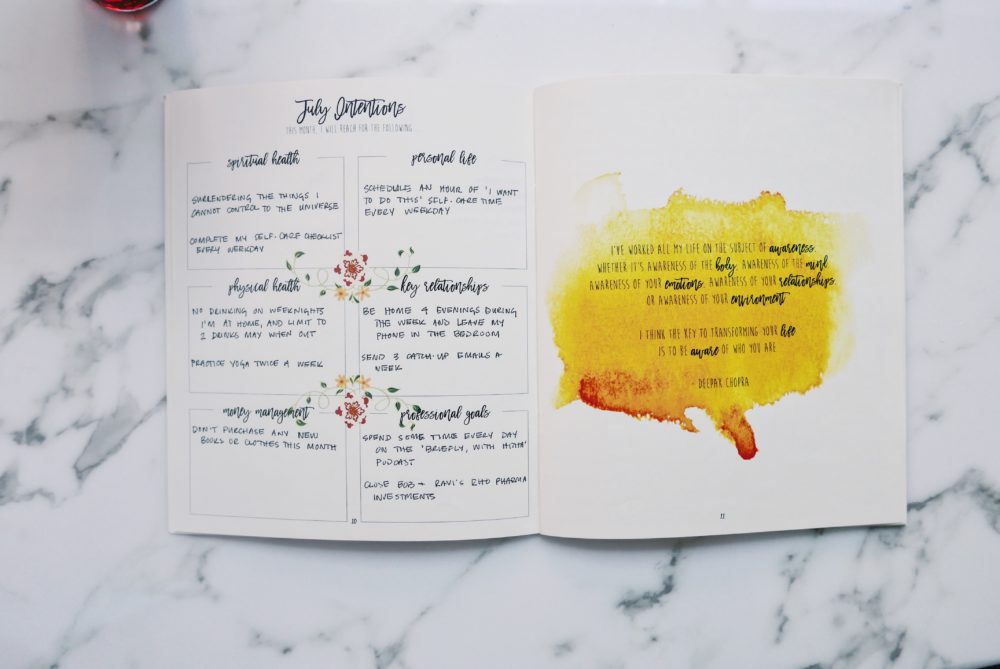 July Intentions
THIS MONTH, I WILL REACH FOR THE FOLLOWING...
spiritual health
SURRENDERING THE THINGS I
CANNOT CONTROL TO THE UNIVERSE
COMPLETE MY SELF-CARE CHECKLIST
EVERY WEEKDAY
personal life
SCHEDULE AN HOUR OF 'I WANT
TO DO THIS' SELF-CARE TIME
EVERY WEEKDAY
physical health
NO DRINKING ON WEEKNIGHTS
I'M AT HOME, AND LIMIT TO
2 DRINKS MAX WHEN OUT
PRACTICE YOGA TWICE A WEEK
key relationships
BE HOME 4 EVENINGS DURING
THE WEEK AND LEAVE MY
PHONE IN THE BEDROOM
SEND 3 CATCH-UP EMAILS A
WEEK
money management
DON'T PURCHASE ANY NEW
BOOKS OR CLOTHES THIS MONTH
professional goals
SPEND SOME TIME EVERY DAY
ON THE 'BRIEFLY, WITH HITHA'
PODCAST
CLOSE BOB + RAVI'S RHO PHARMA
INVESTMENTS
10
I'VE WORKED ALL MY LIFE ON THE SUBJECT OF awareness,
WHETHER IT'S AWARENESS OF THE body, AWARENESS OF THE mind,
AWARENESS OF YOUR emotions, AWARENESS OF YOUR relationships,
OR AWARENESS OF YOUR environment.
I THINK THE KEY TO TRANSFORMING YOUR life
IS TO BE aware OF WHO YOU ARE
- DEEPAK CHOPRA
11